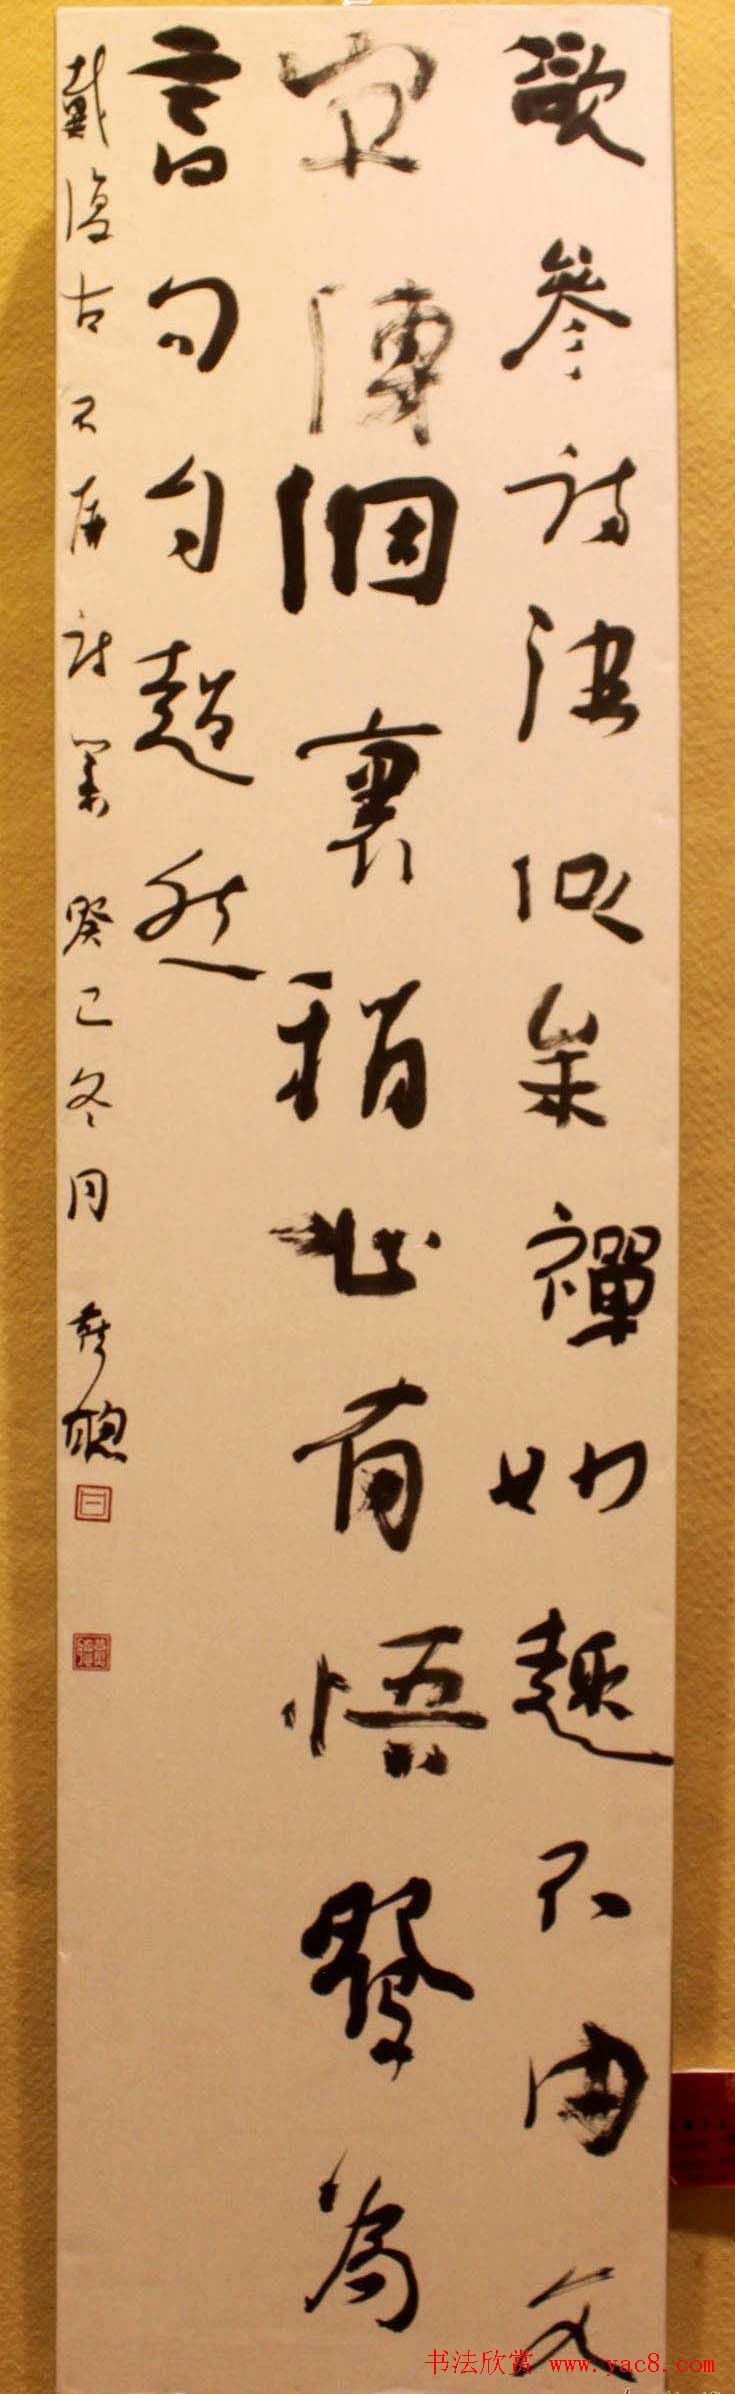 欲參詩律似參禪妙趣不由文
字傳個裏稍心有悟發為
言句自超然
戴復古石屏詩 癸巳冬月 聰
书法欣赏 www.yac8.com